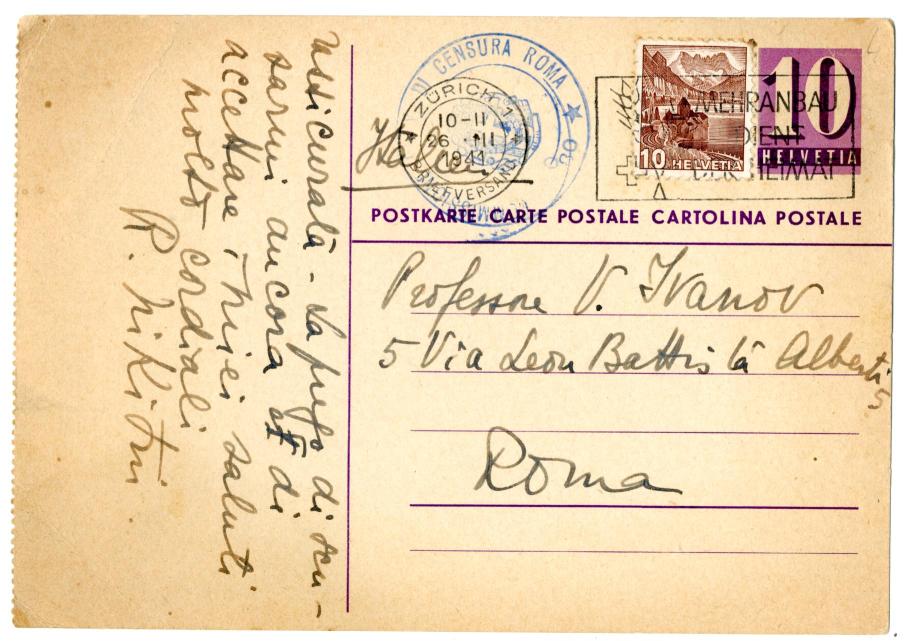 assicurata - La prego di scu-
sarmi ancora di
accettare i miei saluti
molto cordiali
DI CENSURA ROMA
ZÜRICH 1
10-11
26. III
1941
BRIEFVERSAND
Italien
10 HELVETIA
10
HELVETIA
MEHRANBAU
DIENT
HEIMAT
POSTKARTE CARTE POSTALE CARTOLINA POSTALE
Professore V. Ivanov
5 Via Leon Battista Alberti 5
Roma